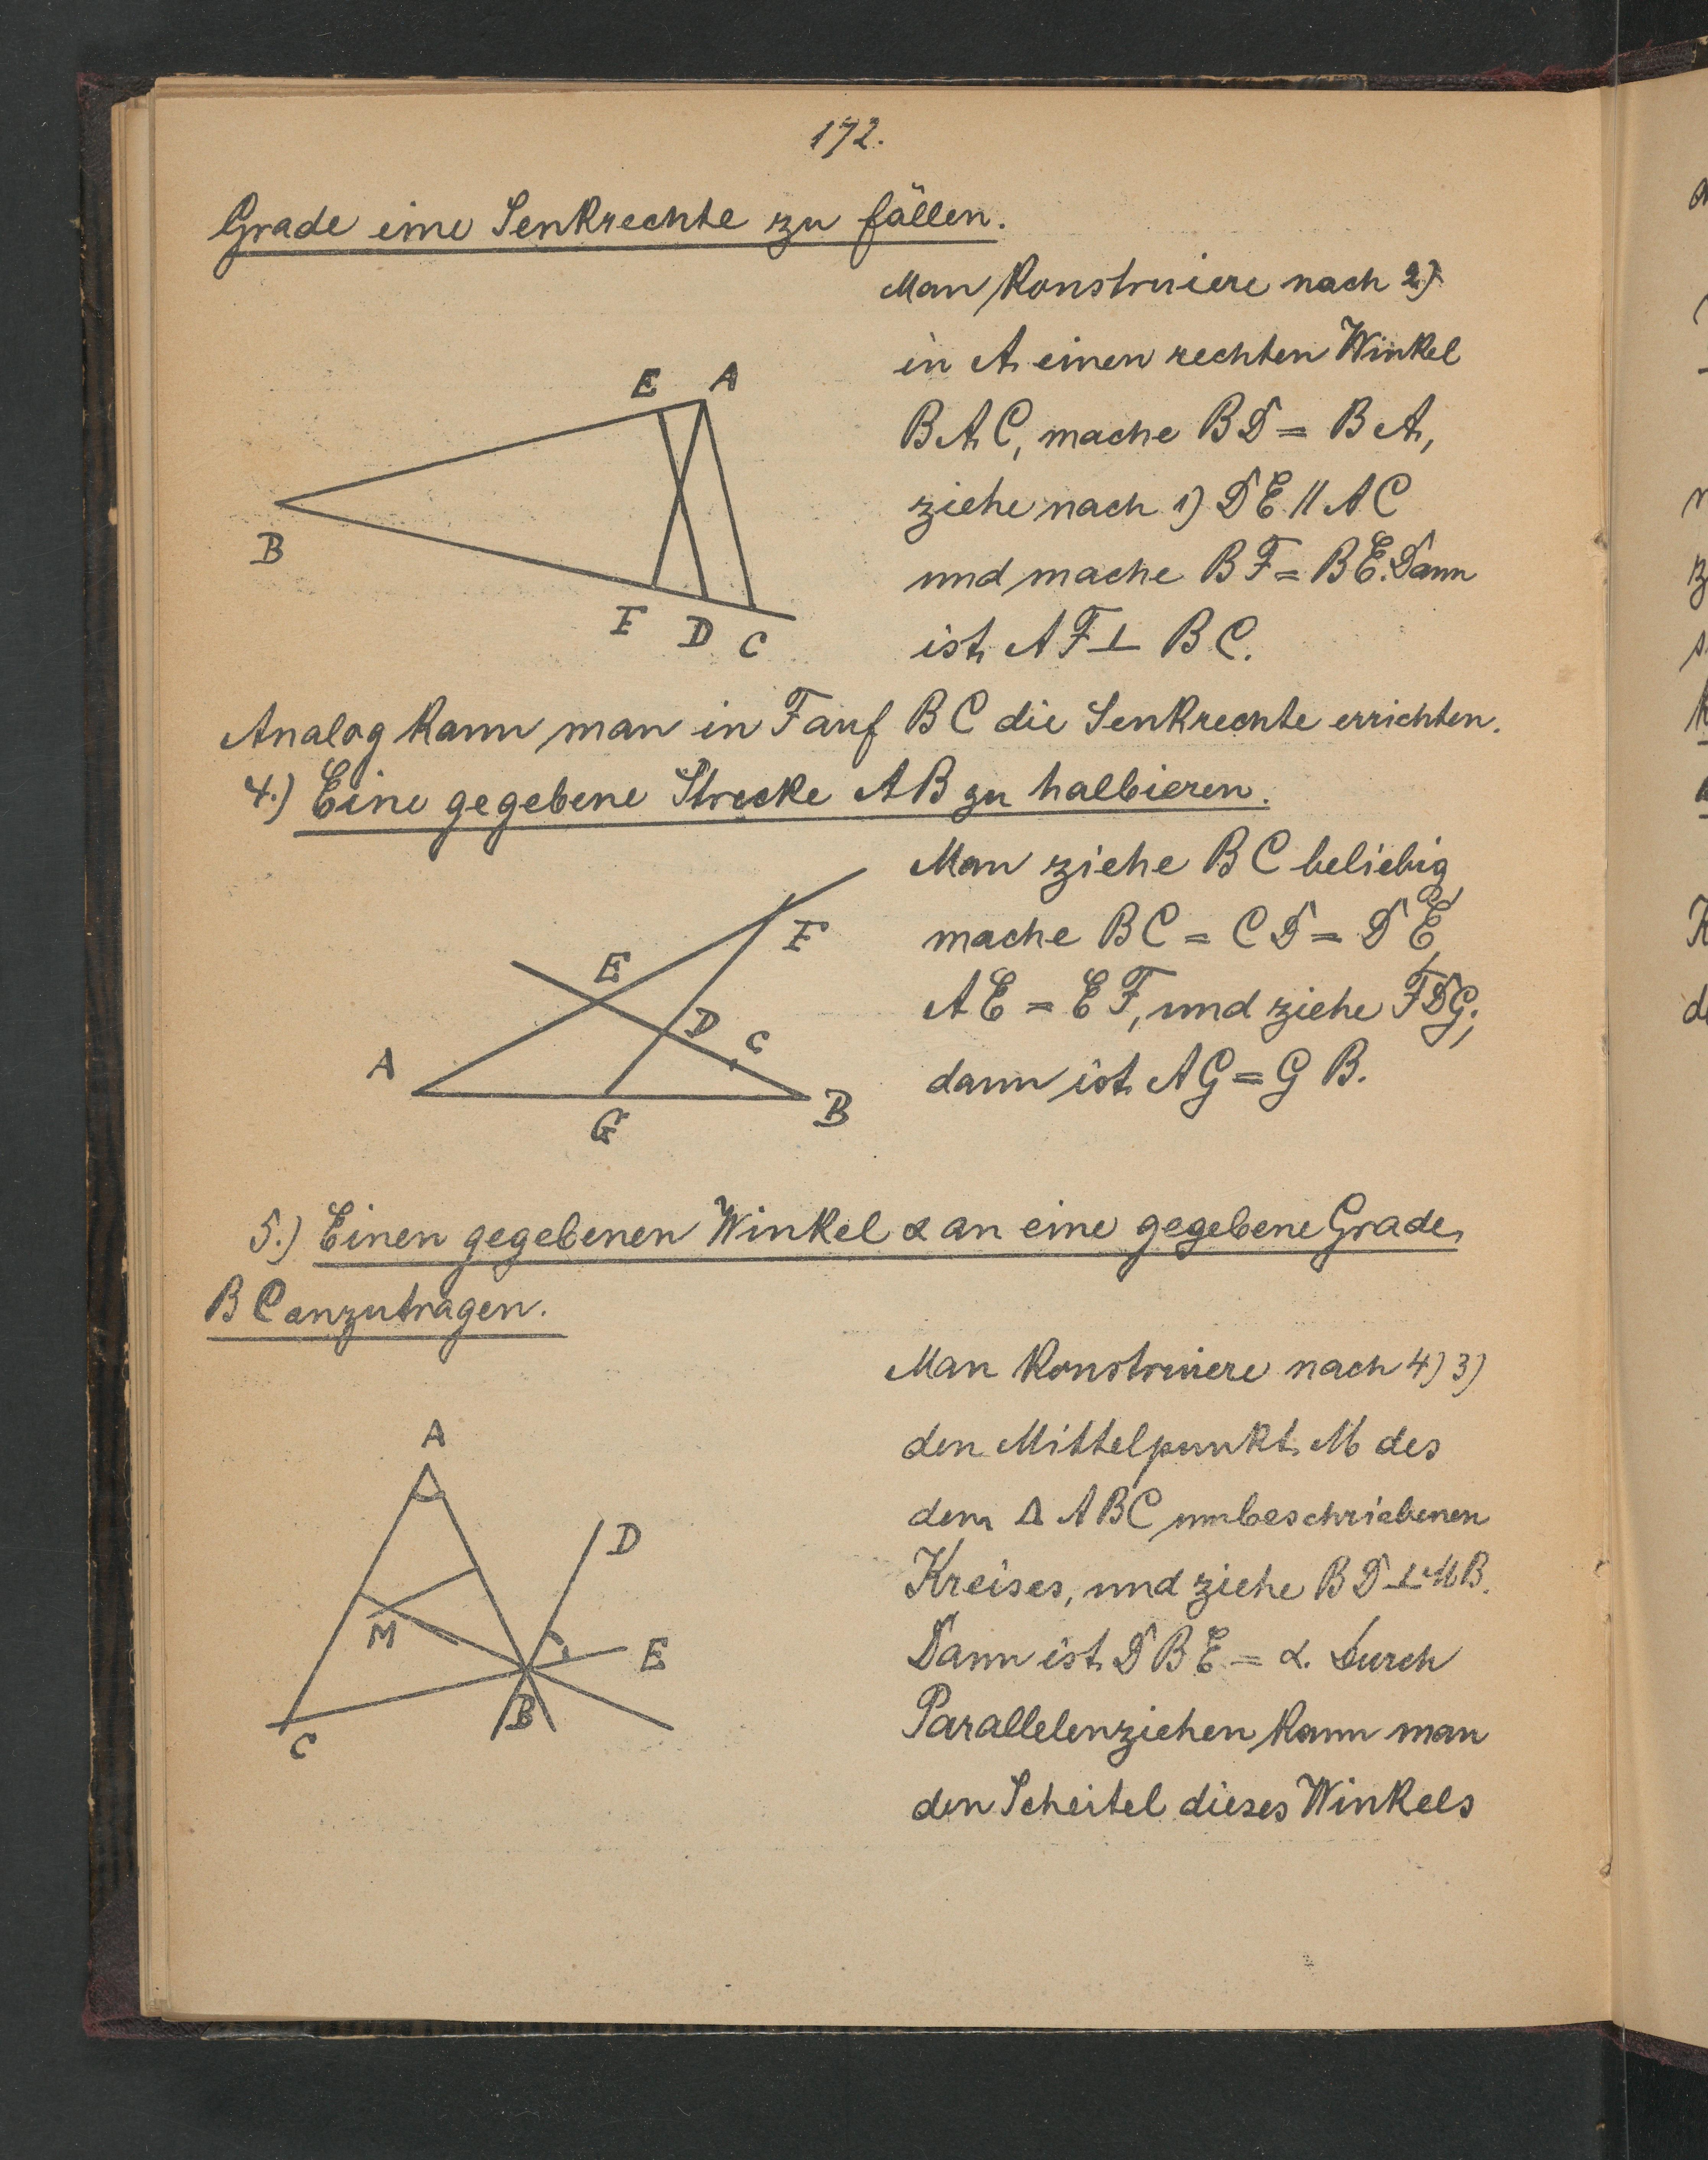 172.
Grade eine Senkrechte zu fällen.
Man konstruiere nach 2)
in A einen rechten Winkel
BAC, mache BD = BA,
ziehe nach 1) DE ∥ AC
und mache BF = BE. Dann
ist AF ⊥ BC.
E A
B
F D C
Analog kann man in F auf BC die Senkrechte errichten.
4.) Eine gegebene Strecke AB zu halbieren.
Man ziehe BC beliebig,
mache BC = CD = DE,
AE = EF, und ziehe FDG;
dann ist AG = GB.
F
E
D C
A
G B
5.) Einen gegebenen Winkel α an eine gegebene Grade
BC anzutragen.
Man konstruiere nach 4) 3)
den Mittelpunkt M des
dem Δ ABC umbeschriebenen
Kreises, und ziehe BD ⊥ MB.
Dann ist DBE = α. Durch
Parallelenziehen kann man
den Scheitel dieses Winkels
A
D
M
E
B
C